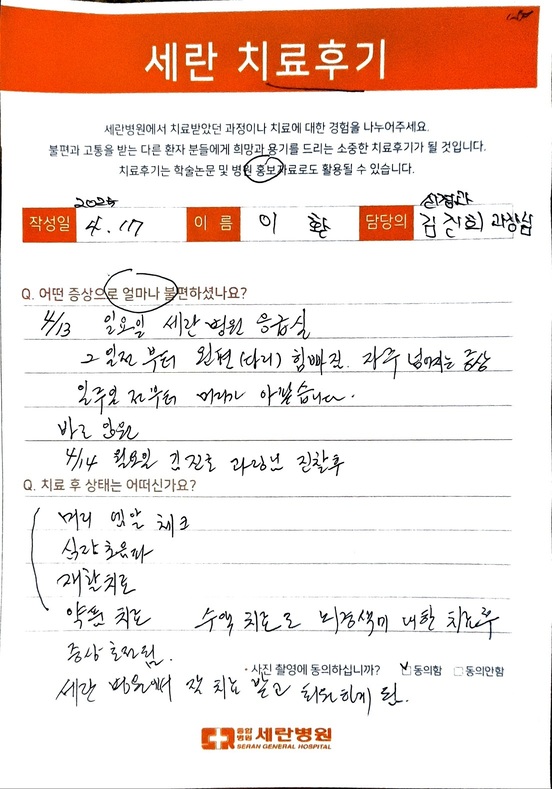 세란 치료후기
세란병원에서 치료받았던 과정이나 치료에 대한 경험을 나누어주세요.
불편과 고통을 받는 다른 환자 분들에게 희망과 용기를 드리는 소중한 치료후기가 될 것입니다.
치료후기는 학술논문 및 병원 홍보자료로도 활용될 수 있습니다.
2025 신경과
작성일 4. 17 이 름 이 환 담당의 김진희 과장님
Q. 어떤 증상으로 얼마나 불편하셨나요?
4/13 일요일 세란병원 응급실
그 일전부터 왼편(다리) 힘빠짐. 자주 넘어지는 증상
일주일 전부터 머리가 아팠습니다.
바로 입원
4/14 월요일 과장님 진찰후
Q. 치료 후 상태는 어떠신가요?
머리 엠알 체크
초음파
재활치료
약품 치료 수액 치료로 뇌경색에 대한 치료후
증상 호전됨.
· 사진 촬영에 동의하십니까? 동의함 동의안함
세란 병원에서 잘 치료 받고 퇴원하게 됨.
종합병원 세란병원
SERAN GENERAL HOSPITAL